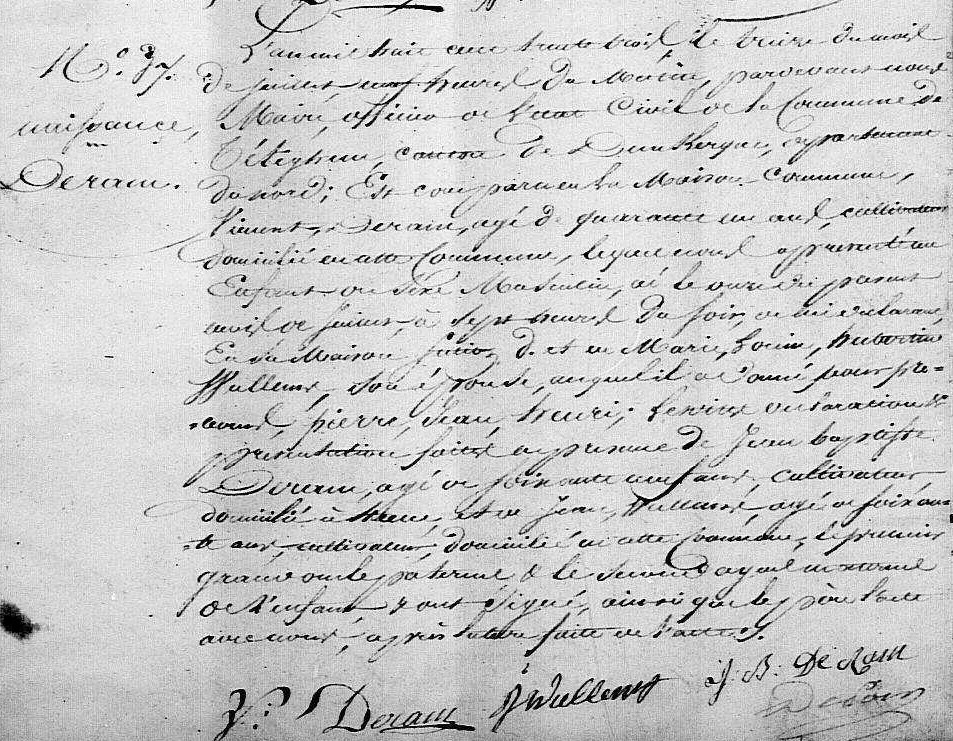 N.° 37.
naissance,
Deram.
L'an mil huit cent trente trois, le treize du mois
de juillet, neuf heures du Matin, pardevant nous
Maire, officier de l'état Civil de la Commune de
Téteghem, canton de Dunkerque, département
du nord; Est comparu en la Maison Commune,
Vincent Deram, agé de quarante un ans, cultivateur
domicilié en cette Commune, lequel nous a présenté un
Enfant de sexe Masculin, né le onze du présent
mois de juillet, à sept heures du soir, de lui déclarant,
En sa Maison et de Marie, Louise, hubertine
Wullens, son épouse, auquel il a donné pour pré=
=noms, pierre, Jean, henri; Lesdites déclaration &
présentation faites en présence de Jean baptiste
Deram, agé de soixante ans, cultivateur,
domicilié à et de Jean, Wullens, agé de soixan=
=te ans, cultivateur, domicilié en cette Commune, le premier
grand oncle paternel & le second ayeul maternel
de l'enfant & ont signé, ainsi que le père l'acte
avec nous, après lecture faite de l'acte.
V.t Deram J Wullens J. B. De Ram